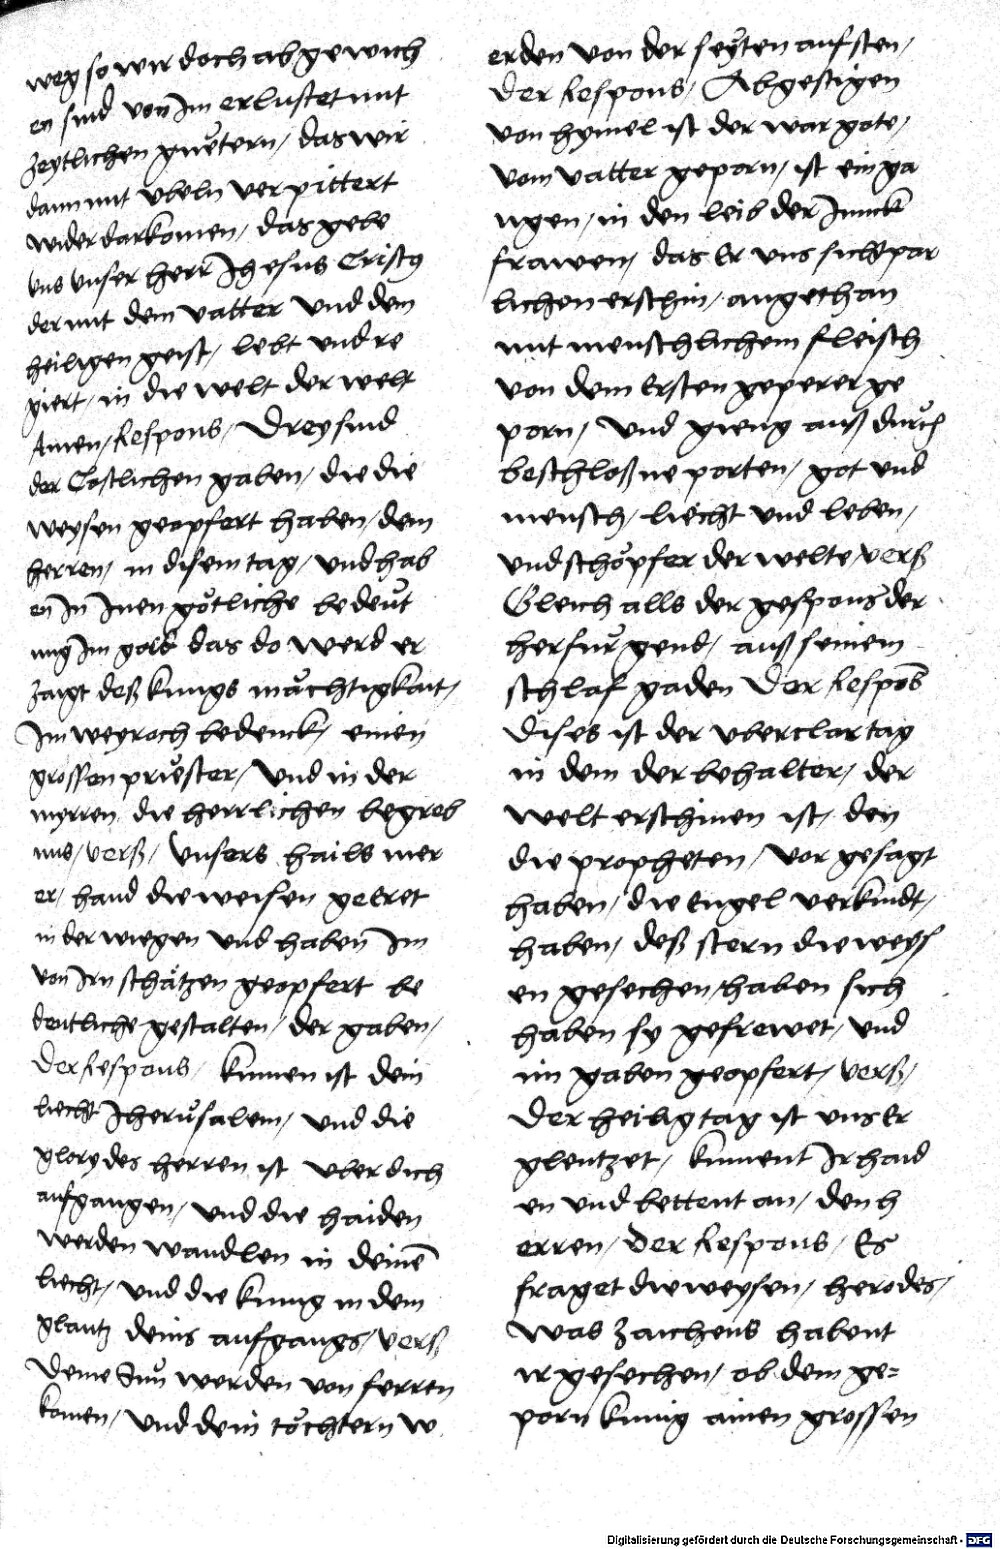 weg so wir doch ab gewich
en sind von Im erlustet mit
zeytlichen guͤetern / das wir
dann mit vbeln ver pittert
wider dar komen / das gebe
vns vnser herr Ihesus Cristus
der mit dem vatter vnd dem
heiligen geist / lebt vnd re
giert / in die welt der welt
Amen / Respons / Drey sind
der Costlichen gaben / die die
weysen geopfert haben / dem
herren / in disem tag / vnd hab
en In Inen goͤtliche bedeuͤt
ung Im gold das do werd er
zaigt deß kunigs maͤchtigkait /
Im weyroch bedenck / einen
grossen priester / Vnd in der
myrren die herrlichen begreb
nus / verß / Vnsers hails mer
er / hand die weisen geEret
in der wiegen vnd haben Im
von Irn schaͤtzen geopfert be
deutliche gestalten / der gaben /
Der Respons / kumen ist dein
liecht Iherusalem / vnd die
glory des herren ist vber dich
aufgangen / vnd die haiden
werden wandlen in deinē
liecht / vnd die kunig in dem
glantz deins aufgangs / verß
Deine Sun werden von ferren
komen / vnd dein toͤchtern w
erden von der seyten aufsten /
Der Respons / Abgestigen
von hymel ist der war gote /
vom vatter geporn / ist ein ga
ngen / in den leib der Junck
frawen / das Er vns sichtpar
lichen erschin / angethan
mit menschlichem fleisch
von dem Ersten geperer ge
porn / Vnd gieng auß durch
beschloßne porten / got vnd
mensch / liecht vnd leben /
vnd schoͤpfer der welte verß
Gleich alls der gespons der
herfur gend / auß seinem
schlaf gaden Der Respos
Dises ist der vberclar tag
in dem der behalter / der
welt erschinen ist / den
die propheten / vor gesagt
haben / die Engel verkundt /
haben / deß stern die weys
en gesechen / haben sich
haben sy gefrewet / vnd
im gaben geopfert / verß /
Der heilig tag ist vns Er
glentzet / kument Ir haid
en vnd bettent an / den h
erren / Der Respons / Es
fraget die weysen / herodes /
Was zaichens habent
ir gesechen / ob dem ge=
porn kunig ainen grossen
Digitalisierung gefördert durch die Deutsche Forschungsgemeinschaft - DFG